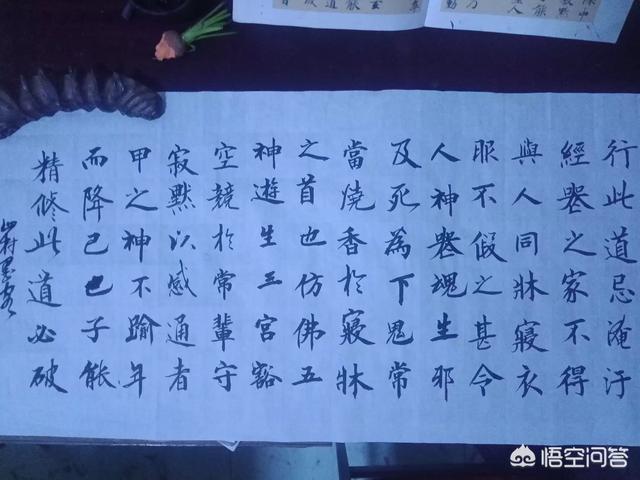 行此道忌淹汙
經喪之家不得
與人同牀寢衣
服不假之甚令
人神喪魂生邪
及死為下鬼常
當燒香於寢牀
之首也仿佛五
神遊生三宮豁
空競於常輩守
寂默以感通者
甲之神不踰年
而降己也子能
精修此道必破
山村墨客
悟空问答